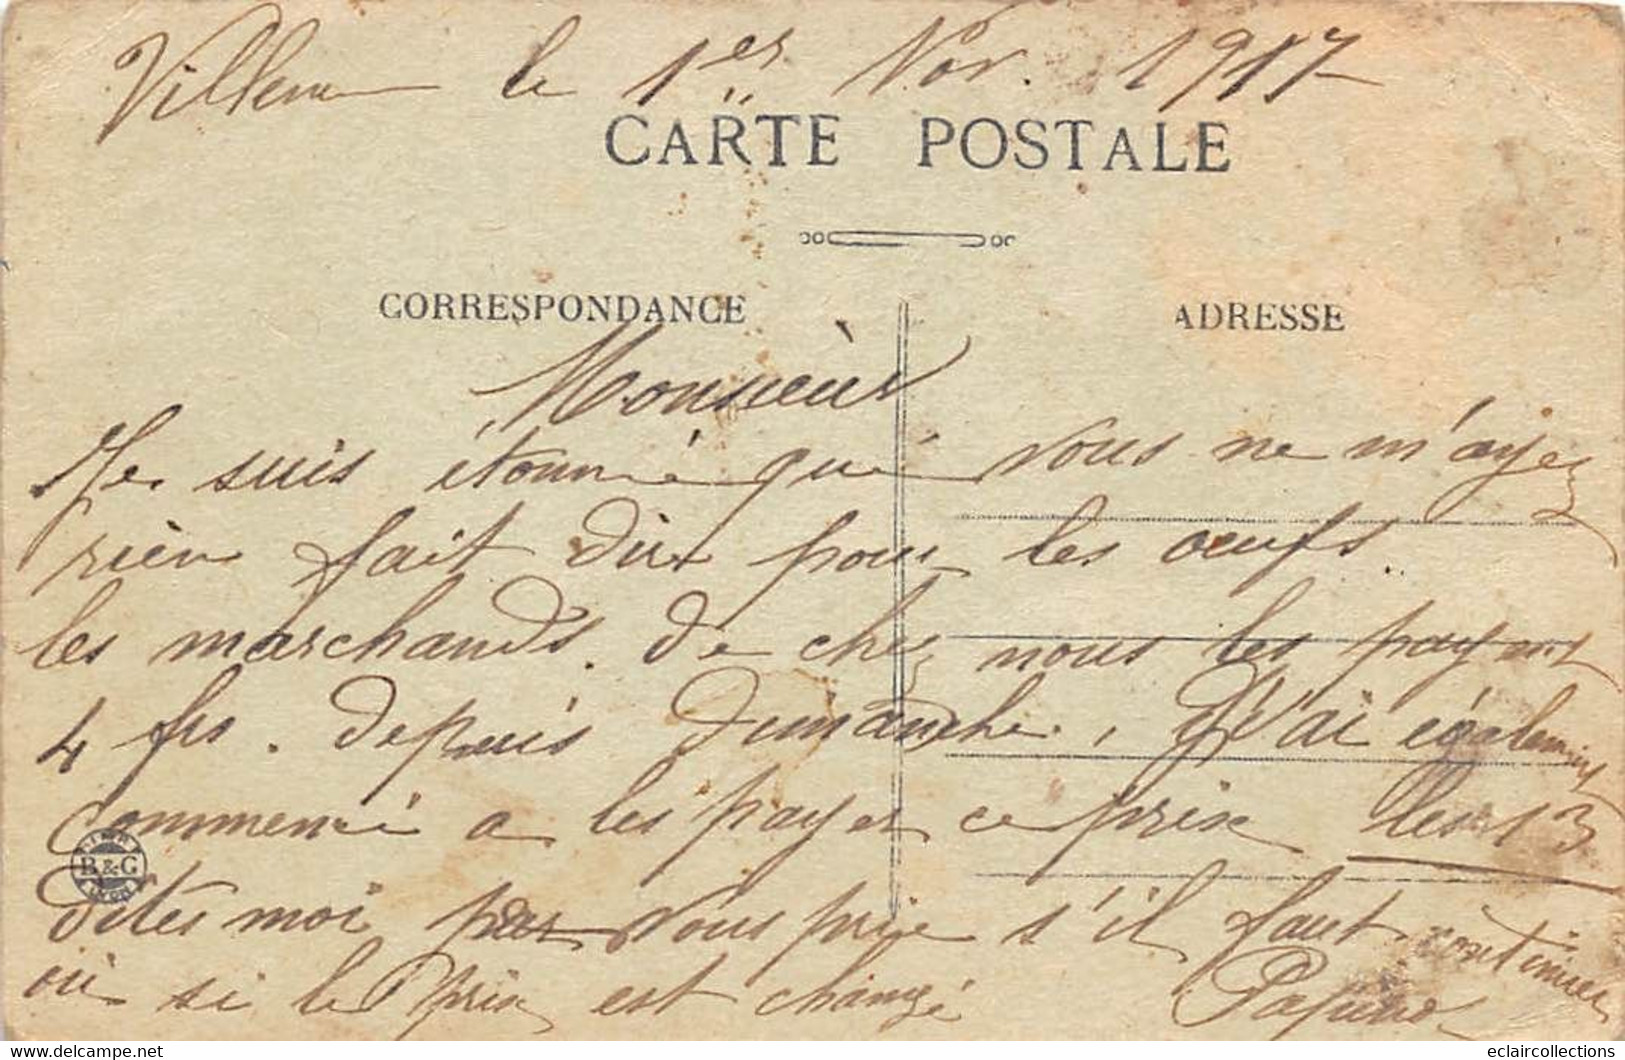 le 1er Nov. 1917
CARTE POSTALE
CORRESPONDANCE
ADRESSE
Monsieur
Je suis étonné que vous ne m'ayez
rien fait dire pour les oeufs.
les marchands de chez nous les payent
4 frs. depuis dimanche, J'ai également
commencé a les payer ce prix les 13
B & G
LYON
dites moi vous prie s'il faut continuer
ou si le prix est changé
eclaircollections © delcampe.net